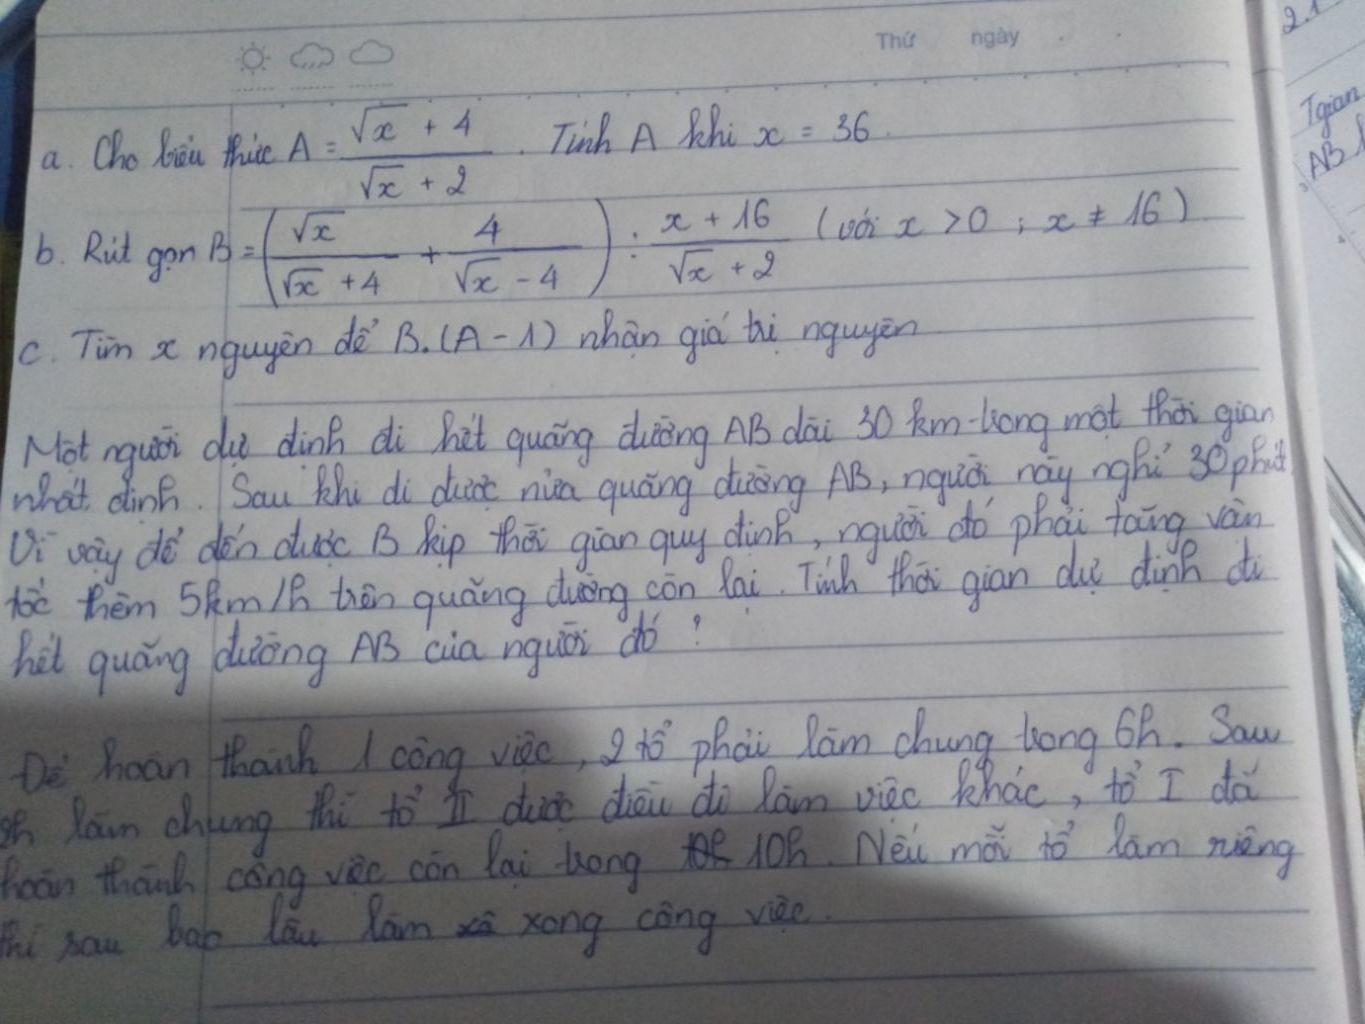 Thứ ngày
a. Cho biểu thức A = (√x + 4)/(√x + 2). Tính A khi x = 36.
b. Rút gọn B = (√x/(√x + 4) + 4/(√x - 4)) : (x + 16)/(√x + 2) (với x > 0 ; x ≠ 16)
c. Tìm x nguyên để B.(A - 1) nhận giá trị nguyên
Một người dự định đi hết quãng đường AB dài 30 km trong một thời gian
nhất định. Sau khi đi được nửa quãng đường AB, người này nghỉ 30 phút
Vì vậy để đến được B kịp thời gian quy định, người đó phải tăng vận
tốc thêm 5km/h trên quãng đường còn lại. Tính thời gian dự định đi
hết quãng đường AB của người đó ?
Để hoàn thành 1 công việc, 2 tổ phải làm chung trong 6h. Sau
làm chung thì tổ II được điều đi làm việc khác, tổ I đã
hoàn thành công việc còn lại trong 10h. Nếu mỗi tổ làm riêng
thì sau bao lâu làm xong công việc.
2.1
Tgian
AB